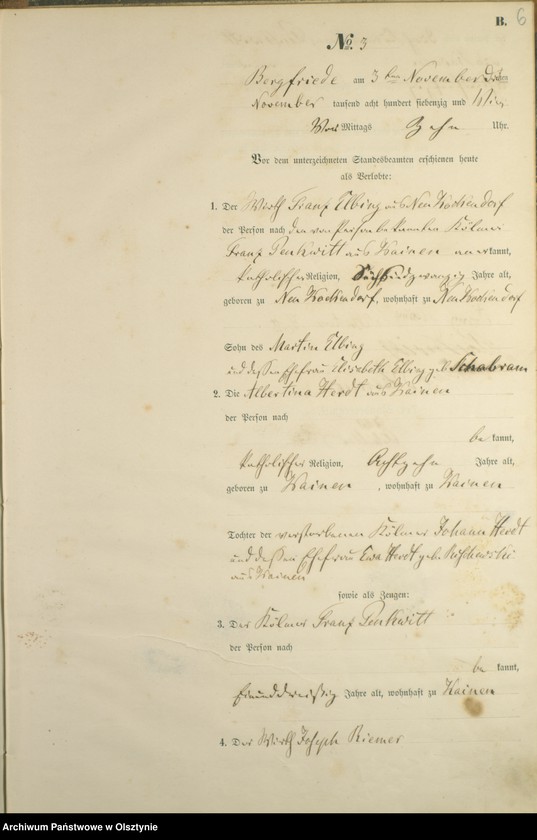 B. 6
No. 3
Bergfriede am 3ten November
November tausend acht hundert siebenzig und vier
Vor Mittags Zehn Uhr.
Vor dem unterzeichneten Standesbeamten erschienen heute
als Verlobte:
1. Der Wirth Franz Elbing aus Neu Kockendorf
der Person nach den von Person bekannten Kölmer
Franz Penkwitt aus Kainen anerkannt,
katholischer Religion, Sechsundzwanzig Jahre alt,
geboren zu Neu Kockendorf, wohnhaft zu Neu Kockendorf
Sohn des Martin Elbing
und dessen Ehefrau Elisabeth Elbing geb. Schabram
2. Die Albertina Herdt aus Kainen
der Person nach
bekannt,
katholischer Religion, Achtzehn Jahre alt,
geboren zu Kainen, wohnhaft zu Kainen
Tochter der verstorbenen Kölmer Johann Herdt
und dessen Ehefrau Ewa Herdt geb.
aus Kainen
sowie als Zeugen:
3. Der Kölmer Franz Penkwitt
der Person nach
bekannt,
Einunddreißig Jahre alt, wohnhaft zu Kainen
4. Der Wirth Joseph Riemer
Archiwum Państwowe w Olsztynie